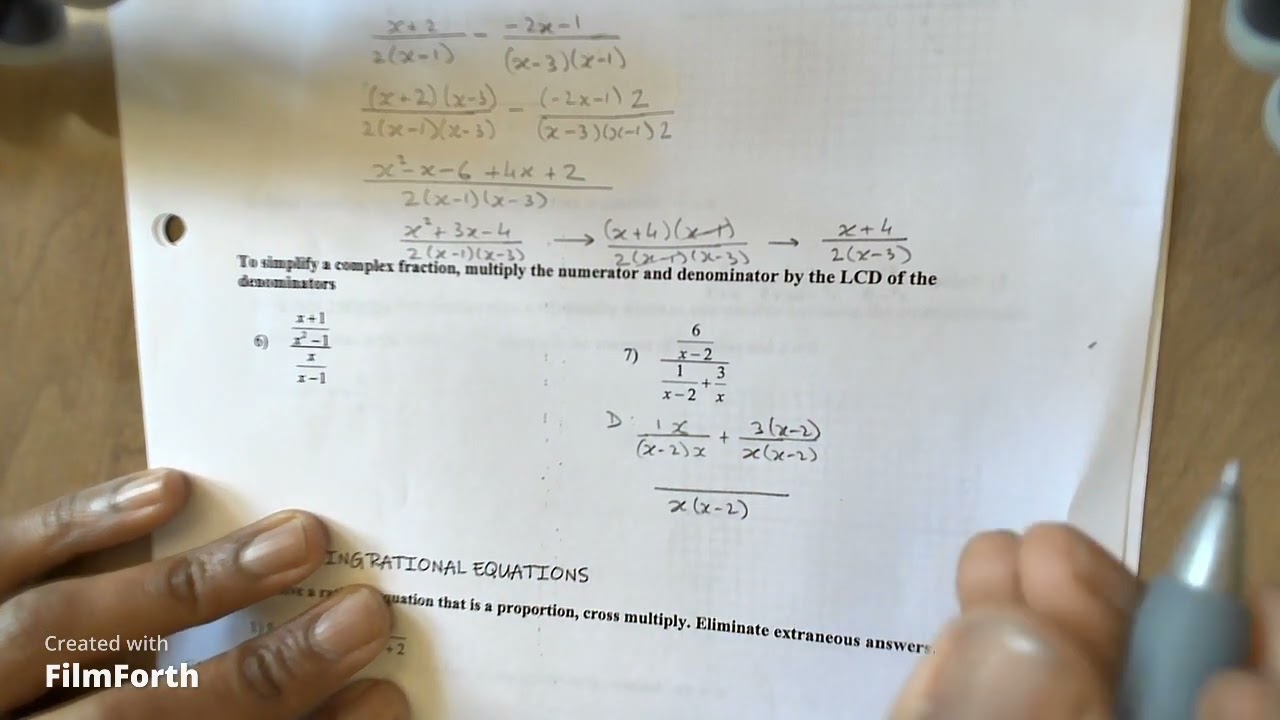 x+2/2(x-1) - -2x-1/(x-3)(x-1)
(x+2)(x-3)/2(x-1)(x-3) - (-2x-1)2/(x-3)(x-1)2
x²-x-6+4x+2/2(x-1)(x-3)
x²+3x-4/2(x-1)(x-3) → (x+4)(x-1)/2(x-1)(x-3) → x+4/2(x-3)
To simplify a complex fraction, multiply the numerator and denominator by the LCD of the
denominators
6)
x+1
x²-1
x
x-1
7)
6
x-2
1/x-2 + 3/x
D: 1x/(x-2)x + 3(x-2)/x(x-2)
x(x-2)
ING RATIONAL EQUATIONS
equation that is a proportion, cross multiply. Eliminate extraneous answers.
+2
Created with
FilmForth